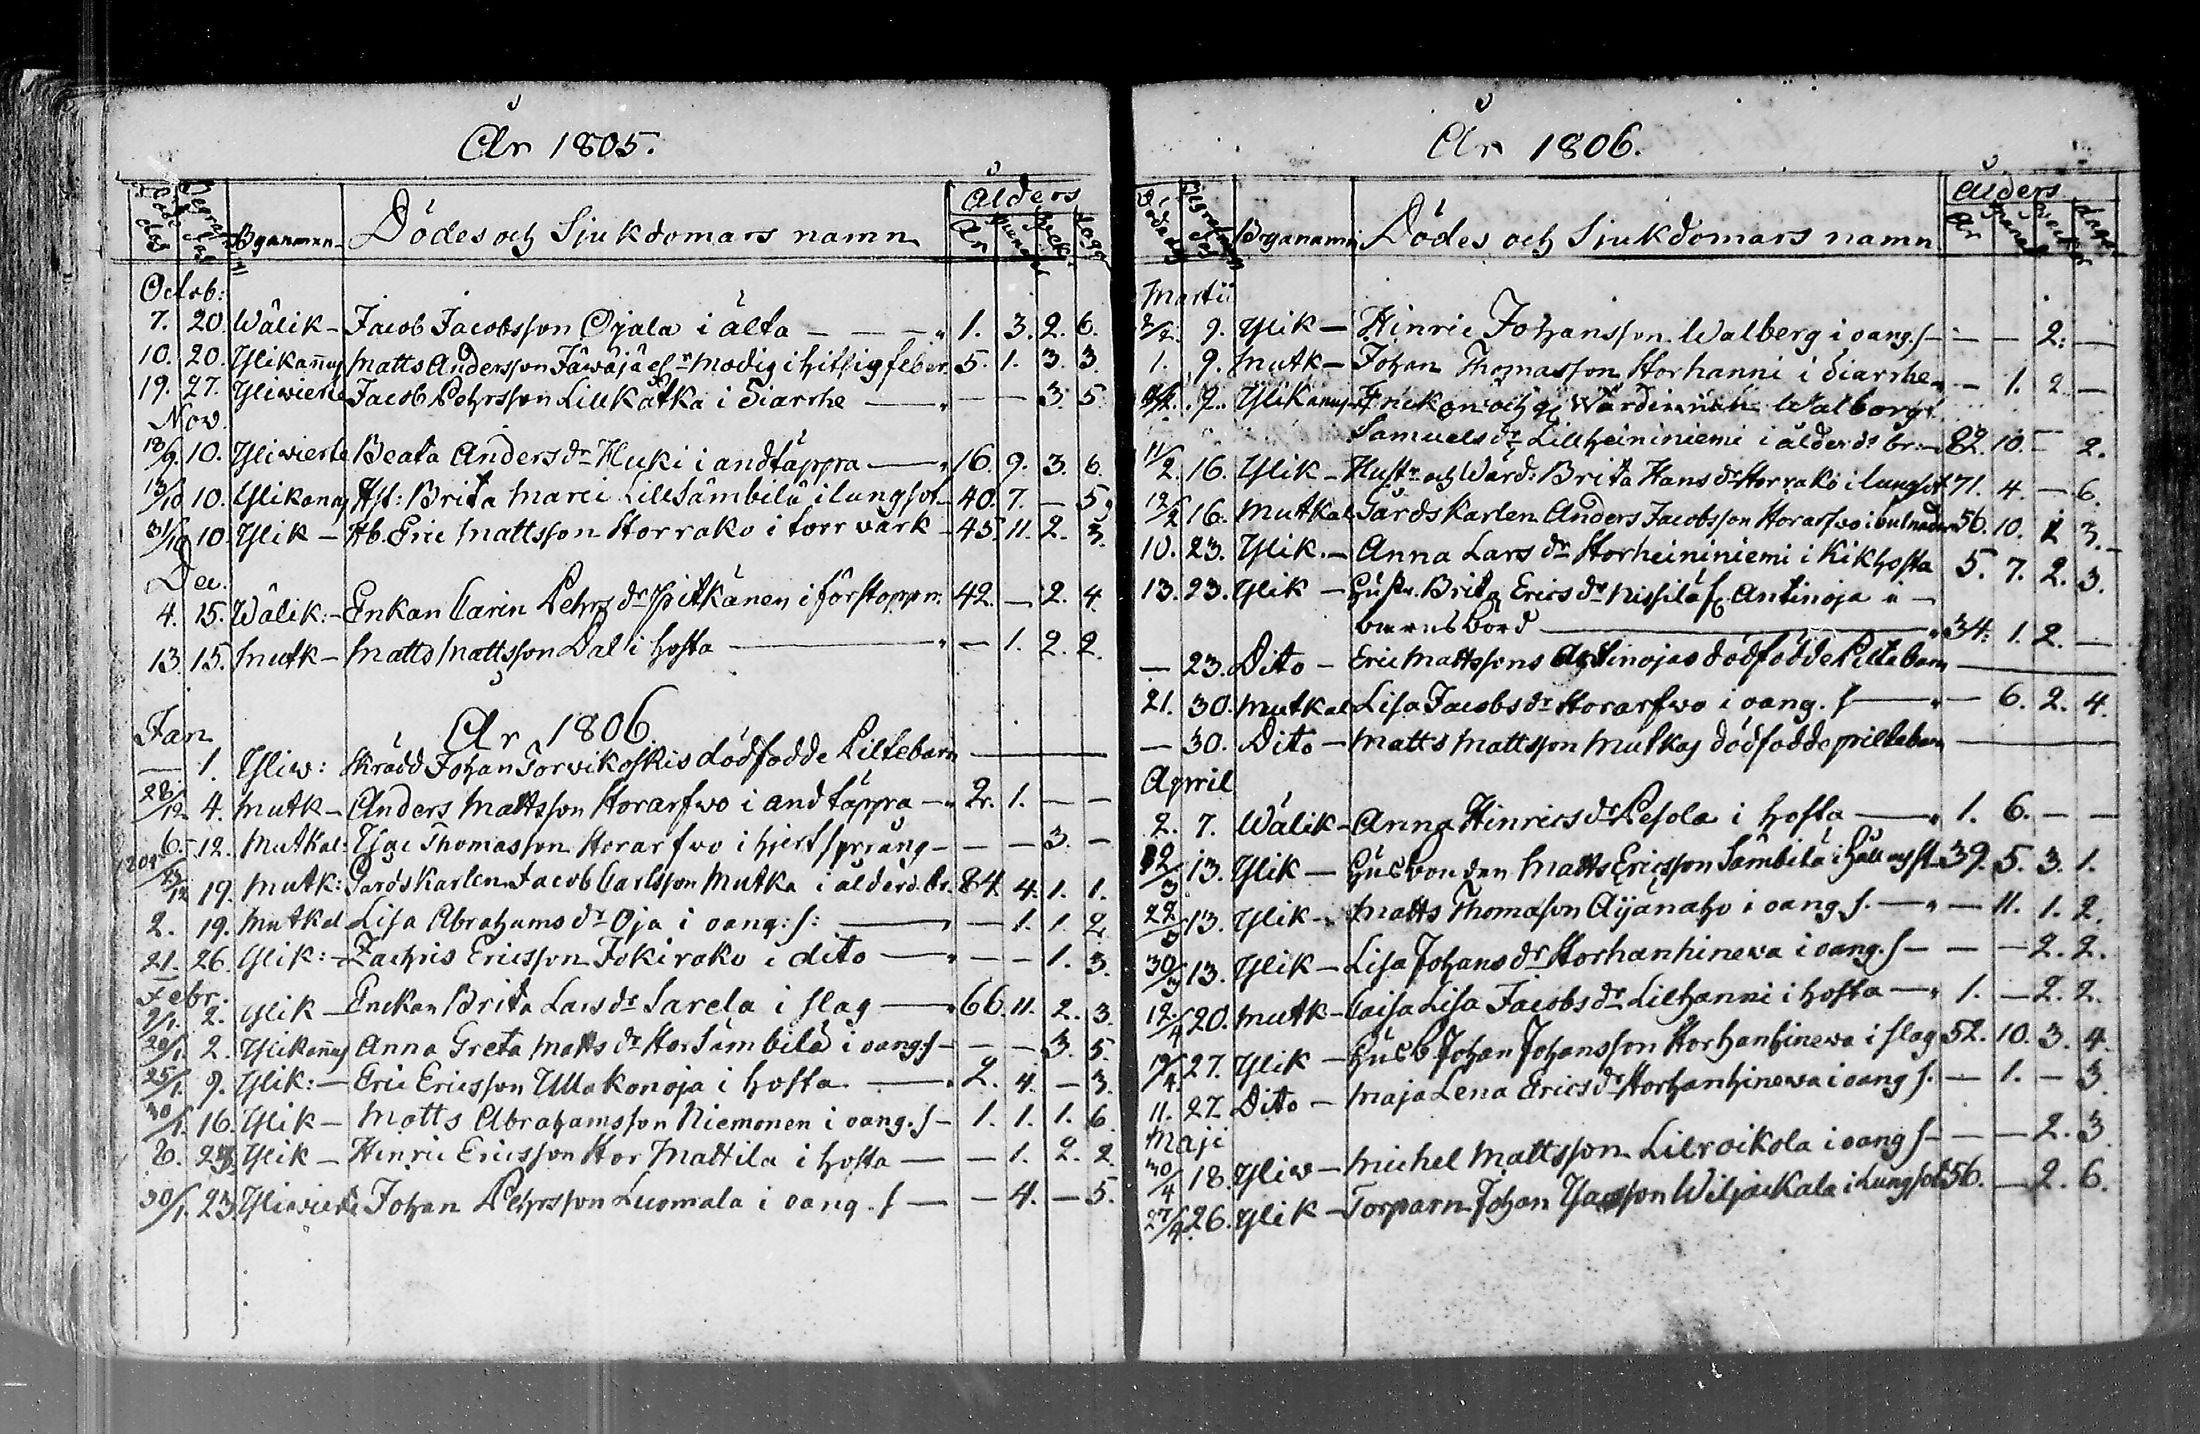 År 1805.
Döde dag Begrafn: dag Byanamn Dödes och Sjukdomars namn Ålders År Månad Veckor Dagar
Octob:
7. 20. Wälik - Jacob Jacobsson Ojala i ålta - - - " 1. 3. 2. 6.
10. 20. Ylikañus Matts Andersson Jäwäjä elr Modig i hitsig feber 5. 1. 3. 3.
19. 27. Ylivieska Jacob Pehrsson Lillkåtka i diarrhe - " - - 3. 5.
Nov.
10. Ylivieska Beata Anders dr Kluki i andtäppa - " 16. 9. 3. 6.
13/10 10. Ylikanus Hst: Brita Marci Lillsämbilä i lungsot - 40. 7. - 5.
31/10 10. Ylik - Hb. Eric Mattsson Storrako i torrvärk - 45. 11. 2. 3.
Dec.
4. 15. Wälik: - Enkan Carin Pehrs dr Pitkänen i förstoppn: 42. - 2. 4.
13. 15. Mutk - Matts Mattsson Dal i hosta - " - 1. 2. 2.
År 1806.
Jan
- 1. Yliw: Skrädd Johan Torvikoskis dödfödde Piltebarn -
28/12 4. Mutk - Anders Mattsson Storarfwo i andtäppa - " 2. 1. - -
6. 12. Mutkal: Thomasson Storarfwo i hjertsprång - - - 3. -
19. Mutk: Gårdskarlen Jacob Carlsson Mutka i ålderd. br. 84. 4. 1. 1.
2. 19. Mutkal Lisa Abrahams dr Oja i oang: s: - " - 1. 1. 2.
21. 26. Ylik: - Zachris Ericsson Jokirako i dito - " - - 1. 3.
Febr.
2. Ylik - Enckan Brita Lars dr Sarela i slag - " 66. 11. 2. 3.
20/1. 2. Ylikañus Anna Greta Matts dr Storsämbilä i oang: s - - - 3. 5.
25/1. 9. Ylik: - Eric Ericsson Ullakonoja i hosta - " 2. 4. - 3.
30/1. 16. Ylik - Matts Abrahamsson Niemonen i oang. s - 1. 1. 1. 6.
23. Ylik - Hinric Ericsson Stor Mattila i hosta - - 1. 2. 2.
30/1. 23. Ylivieska Johan Pehrsson Luomala i oang. s - - 4. - 5.
År 1806.
Döde dag Begrafn: dag Byanamn Dödes och Sjukdomars namn Ålders År Månad Veckor dagar
Martii
9. Ylik - Hinric Johansson Walberg i oang. s - - - 2. -
1. 9. Mutk - Johan Thomasson Storhanni i diarrhe " - 1. 2. -
9. Ylikanus Enckan och Walborg
Samuels dr Lillheininiemi i ålderds br: - 82. 10. - 2.
11/2 16. Ylik - Hustr och Wärd: Brita Hans dr Storrako i lungsot 71. 4. - 6.
12/2 16. Mutkal Gårdskarlen Anders Jacobsson Storarfwo i 56. 10. 3. -
10. 23. Ylik. - Anna Lars dr Storheininiemi i Kikhosta 5. 7. 2. 3.
13. 23. Ylik - Hustr. Brita Erics dr Nissilä Antinoja " -
barnsbörd - " 34. 1. 2. -
- 23. Dito - Eric Mattssons Antinojas dödfödde Piltebarn -
21. 30. Mutkal Lisa Jacobs dr Storarfwo i oang. s - " - 6. 2. 4.
- 30. Dito - Matts Mattsson Mutkas dödfödde piltebarn -
April
2. 7. Wälik - Anna Hinrics dr Pesola i hosta - " 1. 6. - -
13. Ylik - Husbonden Matts Ericsson Sämbilä i håll och st. 39. 5. 3. 1.
22/3 13. Ylik - Matts Thomasson Äijänaho i oang. s. - " - 11. 1. 2.
30/3 13. Ylik - Lisa Johans dr Storhanhinewa i oang. s - - - 2. 2.
12/4 20. Mutk - Caisa Lisa Jacobs dr Lillhanni i hosta - " 1. - 2. 2.
27. Ylik - Husb Johan Johansson Storhanhinewa i slag 52. 10. 3. 4.
11. 27. Dito - Maja Lena Erics dr Storhanhinewa i oang s. - 1. - 3.
Maji
30/4 18. Yliw - Michel Mattsson Lilroikola i oang s - - - 2. 3.
27/4. 26. Ylik - Torparn Johan Wiljaikala i Lungsot 56. - 2. 6.